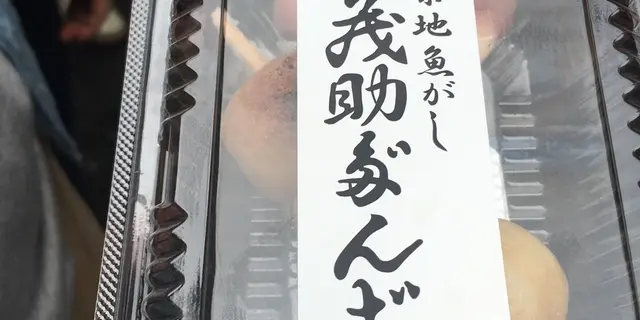 地魚がし
茂助だんご